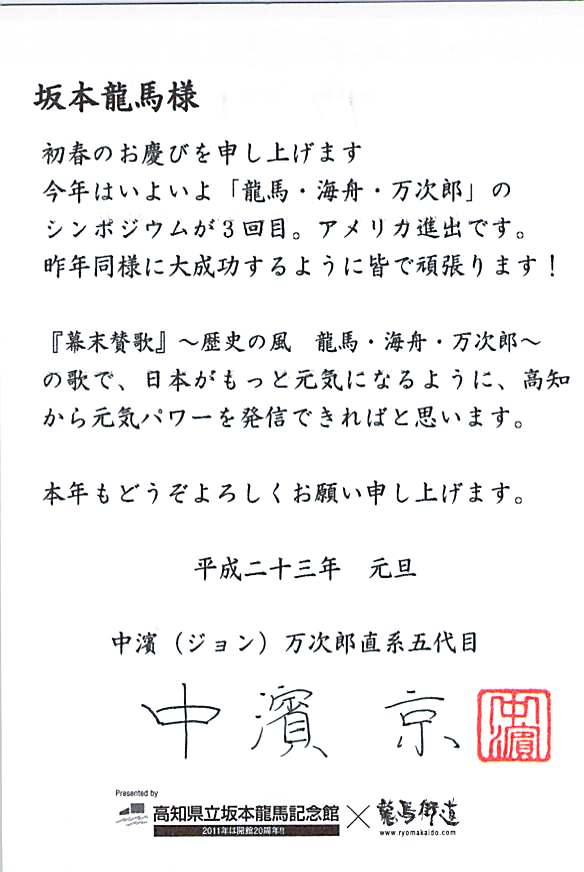 坂本龍馬様
初春のお慶びを申し上げます
今年はいよいよ「龍馬・海舟・万次郎」の
シンポジウムが3回目。アメリカ進出です。
昨年同様に大成功するように皆で頑張ります！
『幕末賛歌』～歴史の風　龍馬・海舟・万次郎～
の歌で、日本がもっと元気になるように、高知
から元気パワーを発信できればと思います。
本年もどうぞよろしくお願い申し上げます。
平成二十三年　元旦
中濱（ジョン）万次郎直系五代目
中濱 京
中濱
Presented by
高知県立坂本龍馬記念館×龍馬街道
2011年は開館20周年!!
www.ryomakaido.com